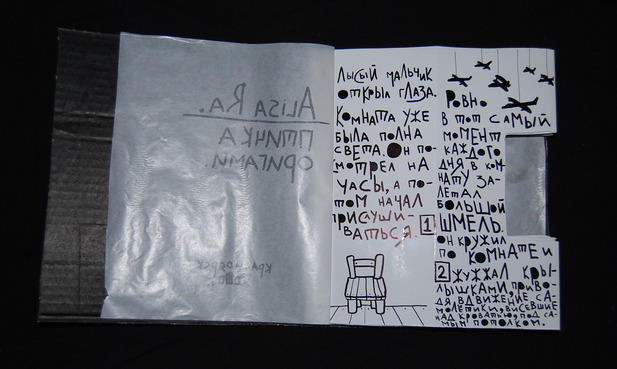 Alisa Ra.
птичка
оригами
красноярск
Лысый мальчик
открыл глаза.
Комната уже
была полна
света. Он по-
смотрел на
часы, а по-
том начал
прислуши-
ваться.
1
Ровно
в тот самый
момент
каждого
дня в ком-
нату за-
летал
большой
шмель.
он кружил
по комнате и
2 жужжал кры-
лышками, приво-
дя в движение са-
молетики, висевшие
над кроватью, под са-
мым потолком.